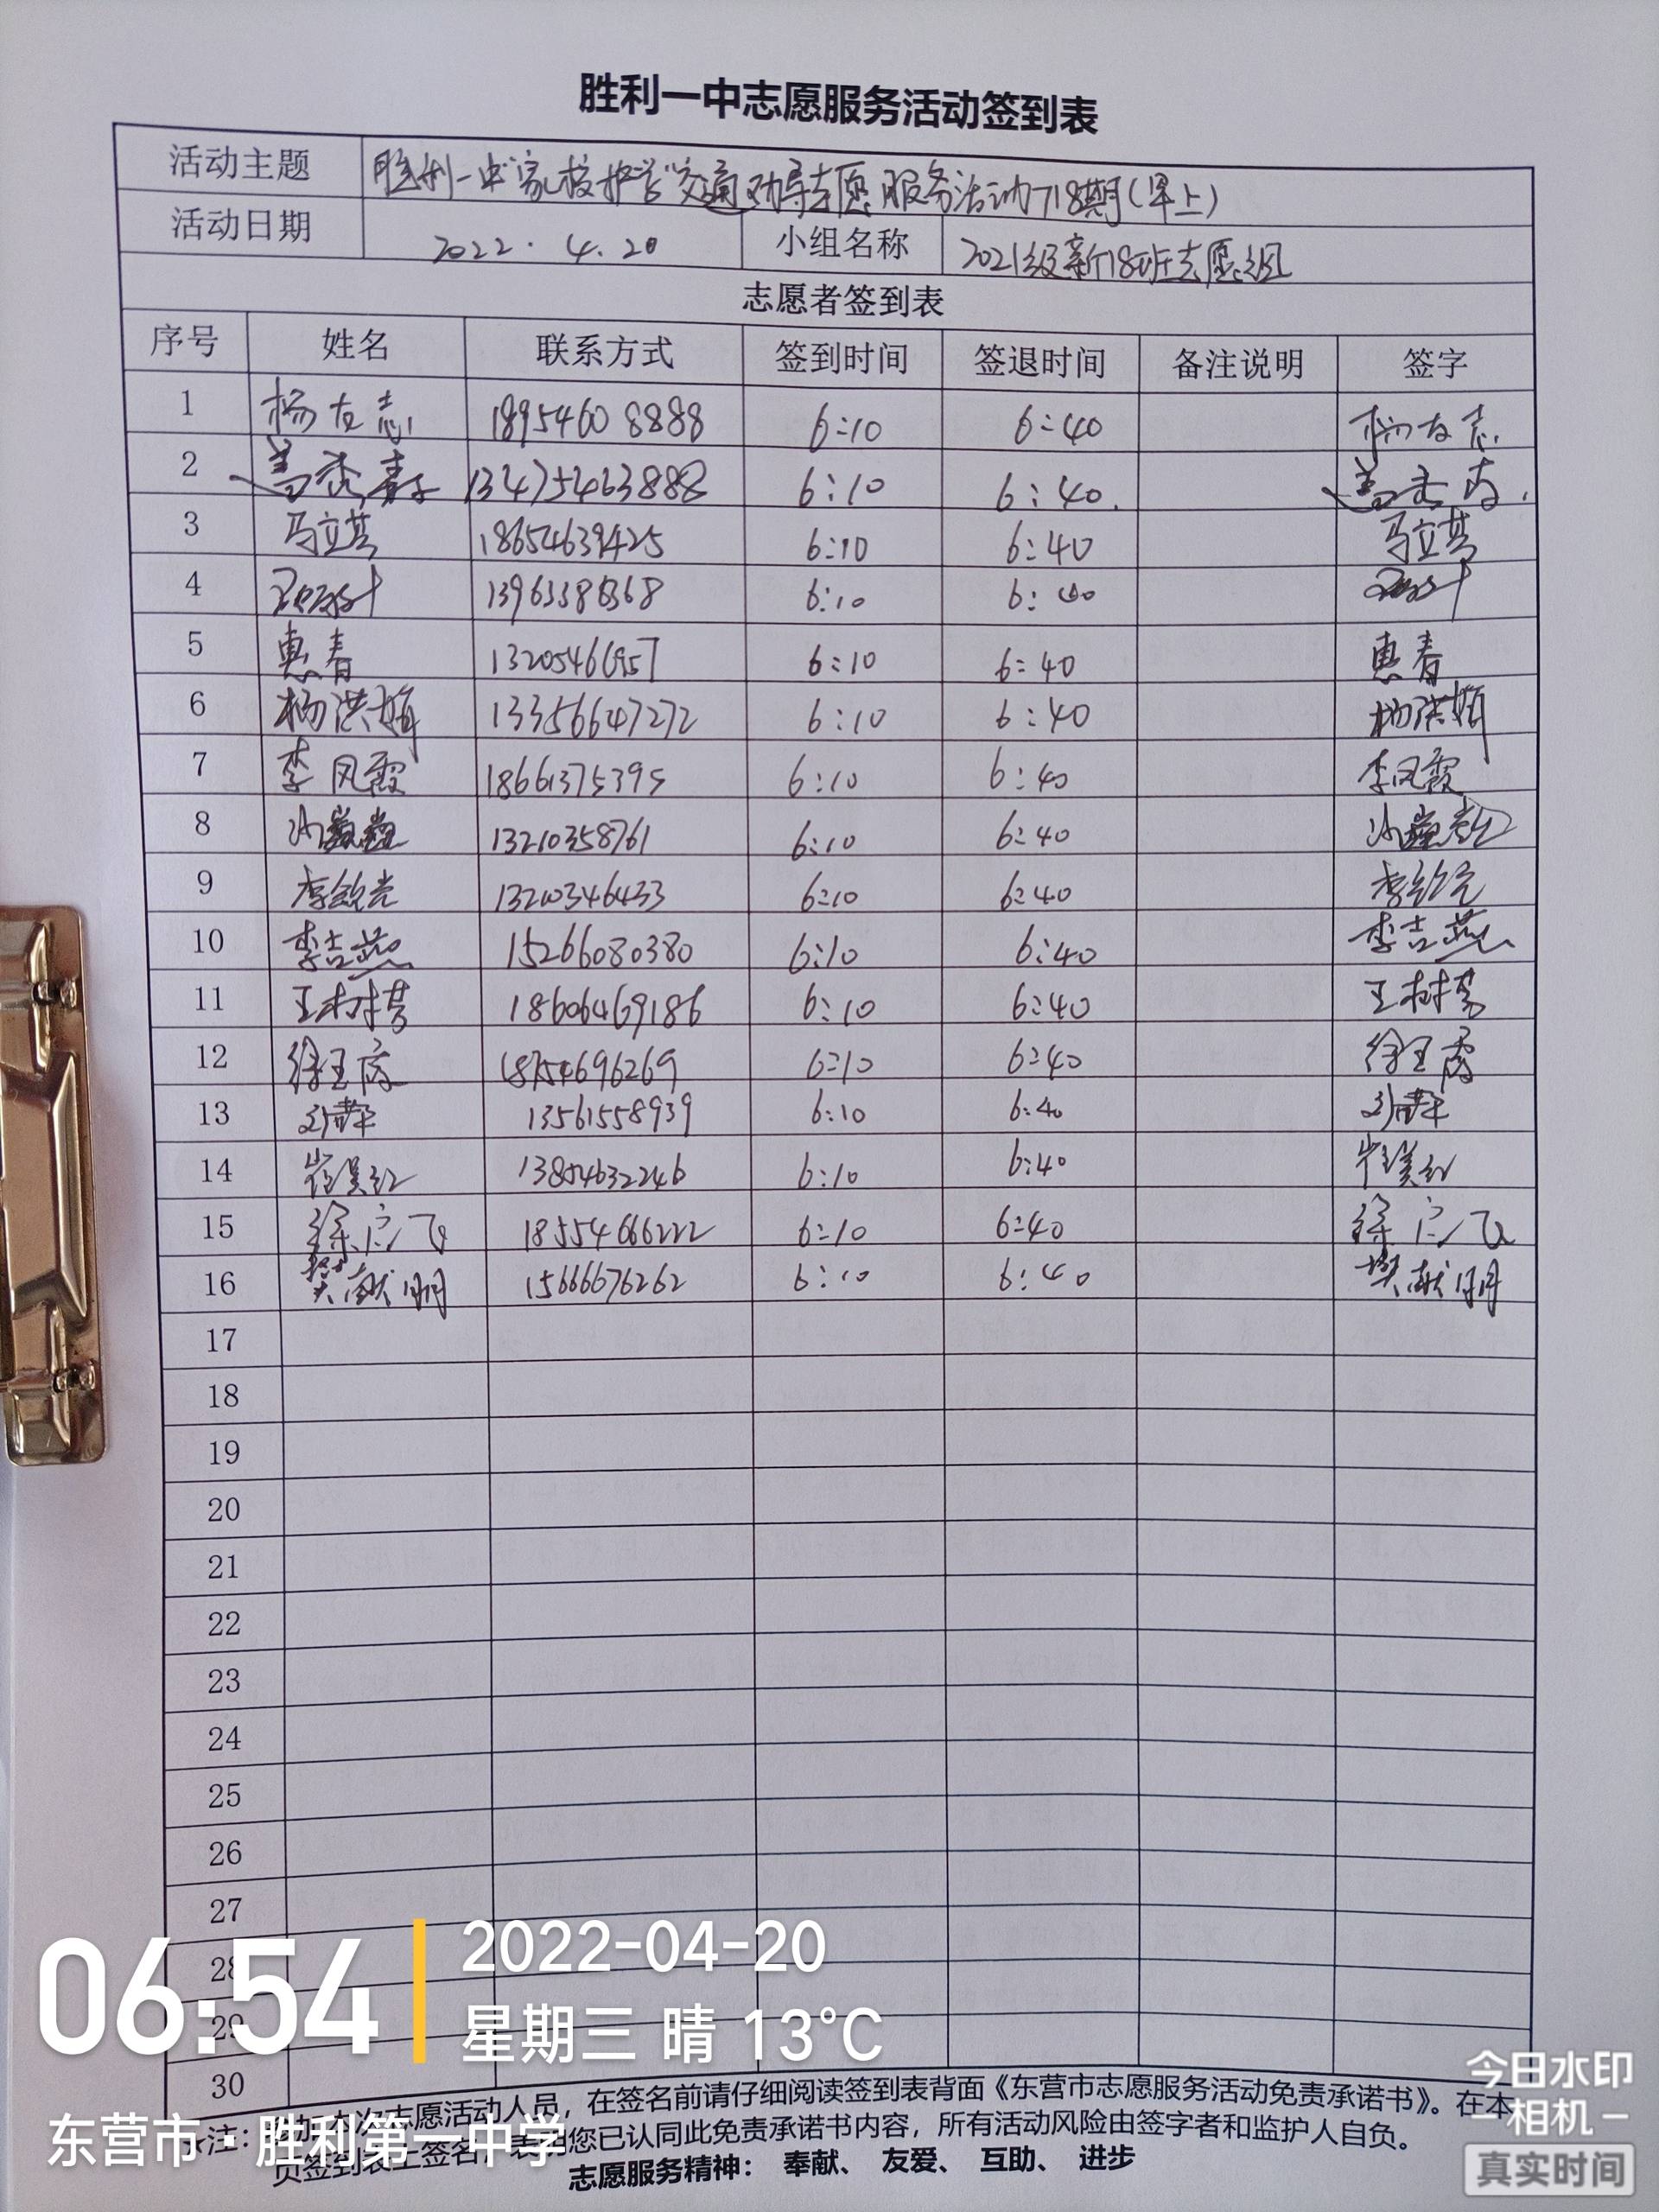 胜利一中志愿服务活动签到表
活动主题 胜利一中"家校护学"交通劝导志愿服务活动718期(早上)
活动日期 2022.4.20 小组名称 2021级新18班志愿组
志愿者签到表
序号 姓名 联系方式 签到时间 签退时间 备注说明 签字
1 杨友志 18954608888 6:10 6:40 杨友志
2 13475463888 6:10 6:40.
3 马立英 18654639425 6:10 6:40 马立英
4 6:10 6:40
5 惠春 13205466957 6:10 6:40 惠春
6 杨洪娟 13356647272 6:10 6:40 杨洪娟
7 李风霞 18661375395 6:10 6:40 李风霞
8 13210358761 6:10 6:40
9 13210346433 6:10 6:40
10 李吉燕 15266080380 6:10 6:40 李吉燕
11 王树芬 18606469186 6:10 6:40 王树芬
12 18754696269 6:10 6:40
13 13561558939 6:10 6:40
14 崔美红 13854632246 6:10 6:40 崔美红
15 徐广飞 18554666222 6:10 6:40 徐广飞
16 樊献明 15666676262 6:10 6:40 樊献明
17
18
19
20
21
22
23
24
25
26
27
28
29
30
注: 参加本次志愿活动人员，在签名前请仔细阅读签到表背面《东营市志愿服务活动免责承诺书》。在本
页签到表上签名，表明您已认同此免责承诺书内容，所有活动风险由签字者和监护人自负。
志愿服务精神： 奉献、 友爱、 互助、 进步
06:54
2022-04-20
星期三 晴 13°C
东营市·胜利第一中学
今日水印
相机
真实时间